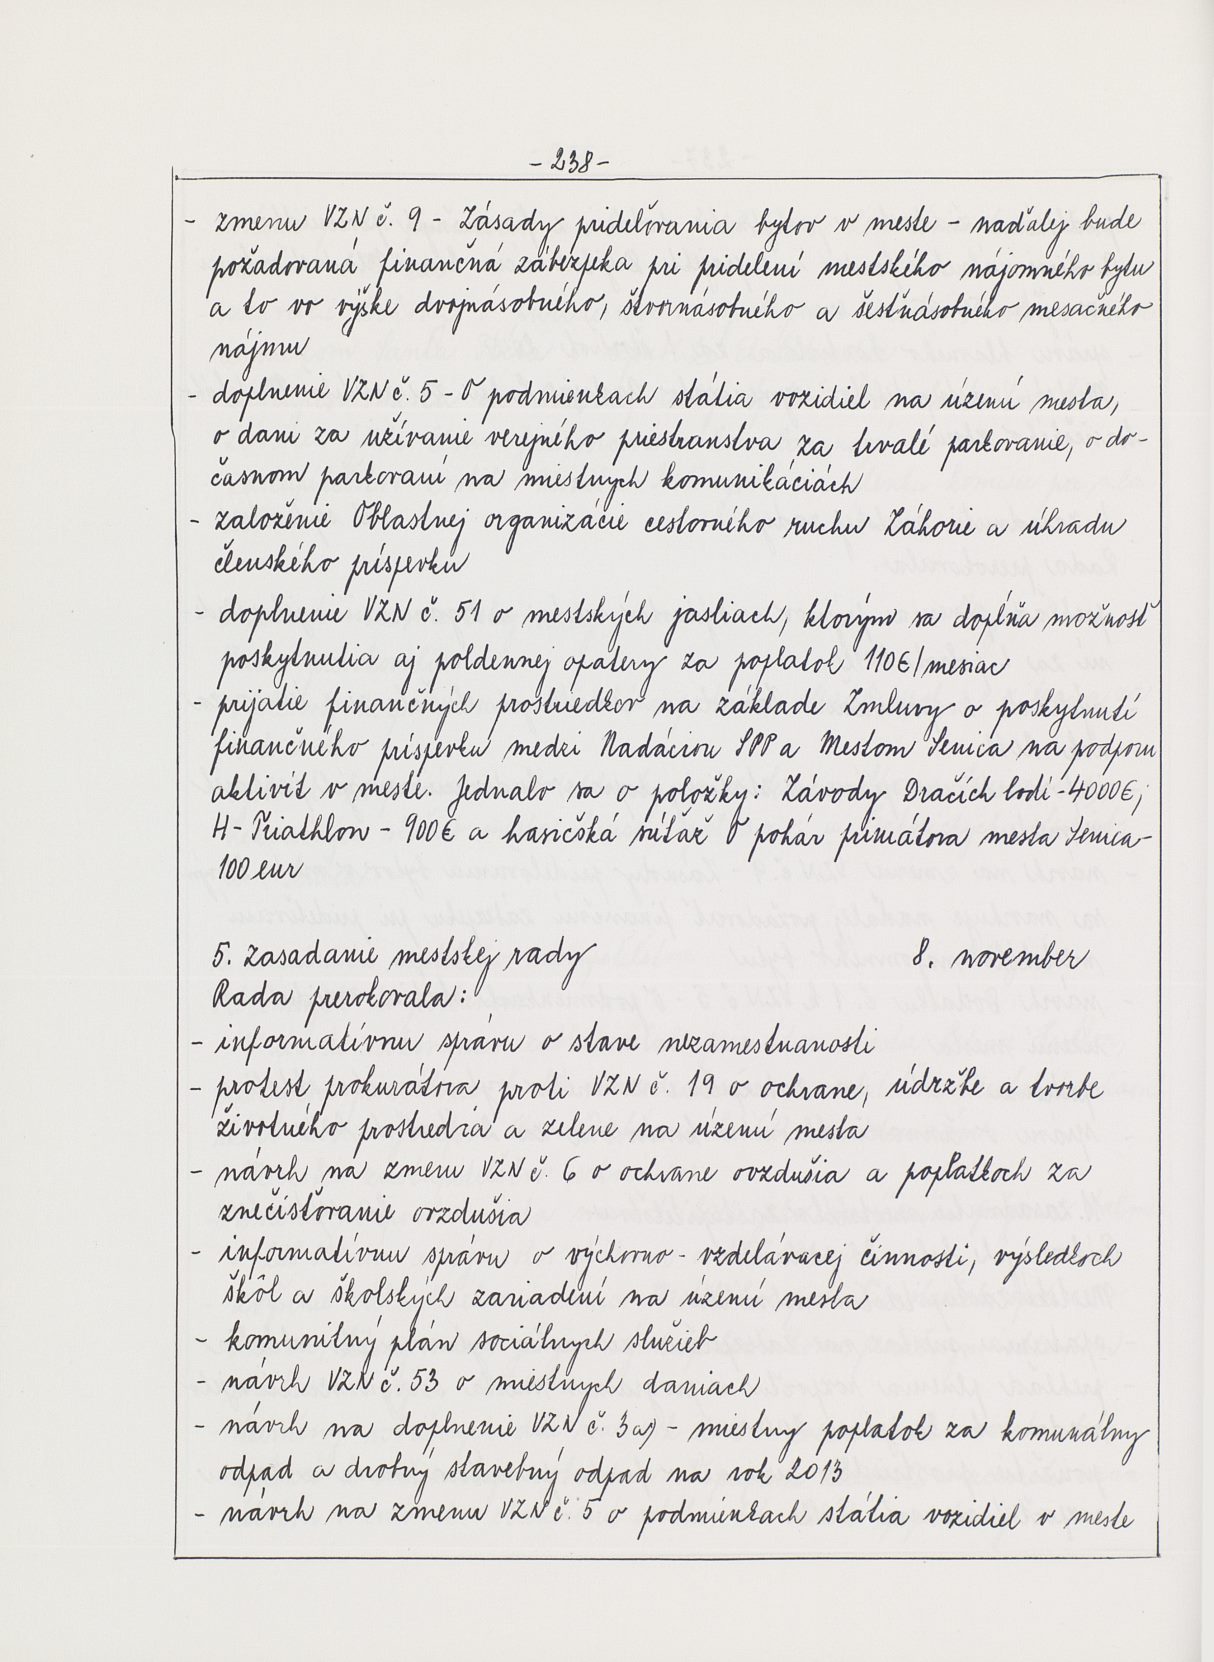 - 238 -
- zmenu VZN č. 9 - Zásady prideľovania bytov v meste - naďalej bude
požadovaná finančná zábezpeka pri pridelení mestského nájomného bytu
a to vo výške dvojnásobného, štvornásobného a šesťnásobného mesačného
nájmu
- doplnenie VZN č. 5 - O podmienkach státia vozidiel na území mesta,
o dani za užívanie verejného priestranstva za trvalé parkovanie, o do-
časnom parkovaní na miestnych komunikáciách
- založenie Oblastnej organizácie cestovného ruchu Záhorie a úhradu
členského príspevku
- doplnenie VZN č. 51 o mestských jasliach, ktorým sa dopĺňa možnosť
poskytnutia aj poldennej opatery za poplatok 110€/mesiac
- prijatie finančných prostriedkov na základe Zmluvy o poskytnutí
finančného príspevku medzi Nadáciou SPP a Mestom Senica na podporu
aktivít v meste. Jednalo sa o položky: Závody Dračích lodí - 4000€,
H - Triathlon - 900€ a hasičská súťaž O pohár primátora mesta Senica -
100 eur
5. zasadanie mestskej rady 8. november
Rada prerokovala:
- informatívnu správu o stave nezamestnanosti
- protest prokurátora proti VZN č. 19 o ochrane, údržbe a tvorbe
životného prostredia a zelene na území mesta
- návrh na zmenu VZN č. 6 o ochrane ovzdušia a poplatkoch za
znečisťovanie ovzdušia
- informatívnu správu o výchovno - vzdelávacej činnosti, výsledkoch
škôl a školských zariadení na území mesta
- komunitný plán sociálnych služieb
- návrh VZN č. 53 o miestnych daniach
- návrh na doplnenie VZN č. 3a) - miestny poplatok za komunálny
odpad a drobný stavebný odpad na rok 2013
- návrh na zmenu VZN č. 5 o podmienkach státia vozidiel v meste